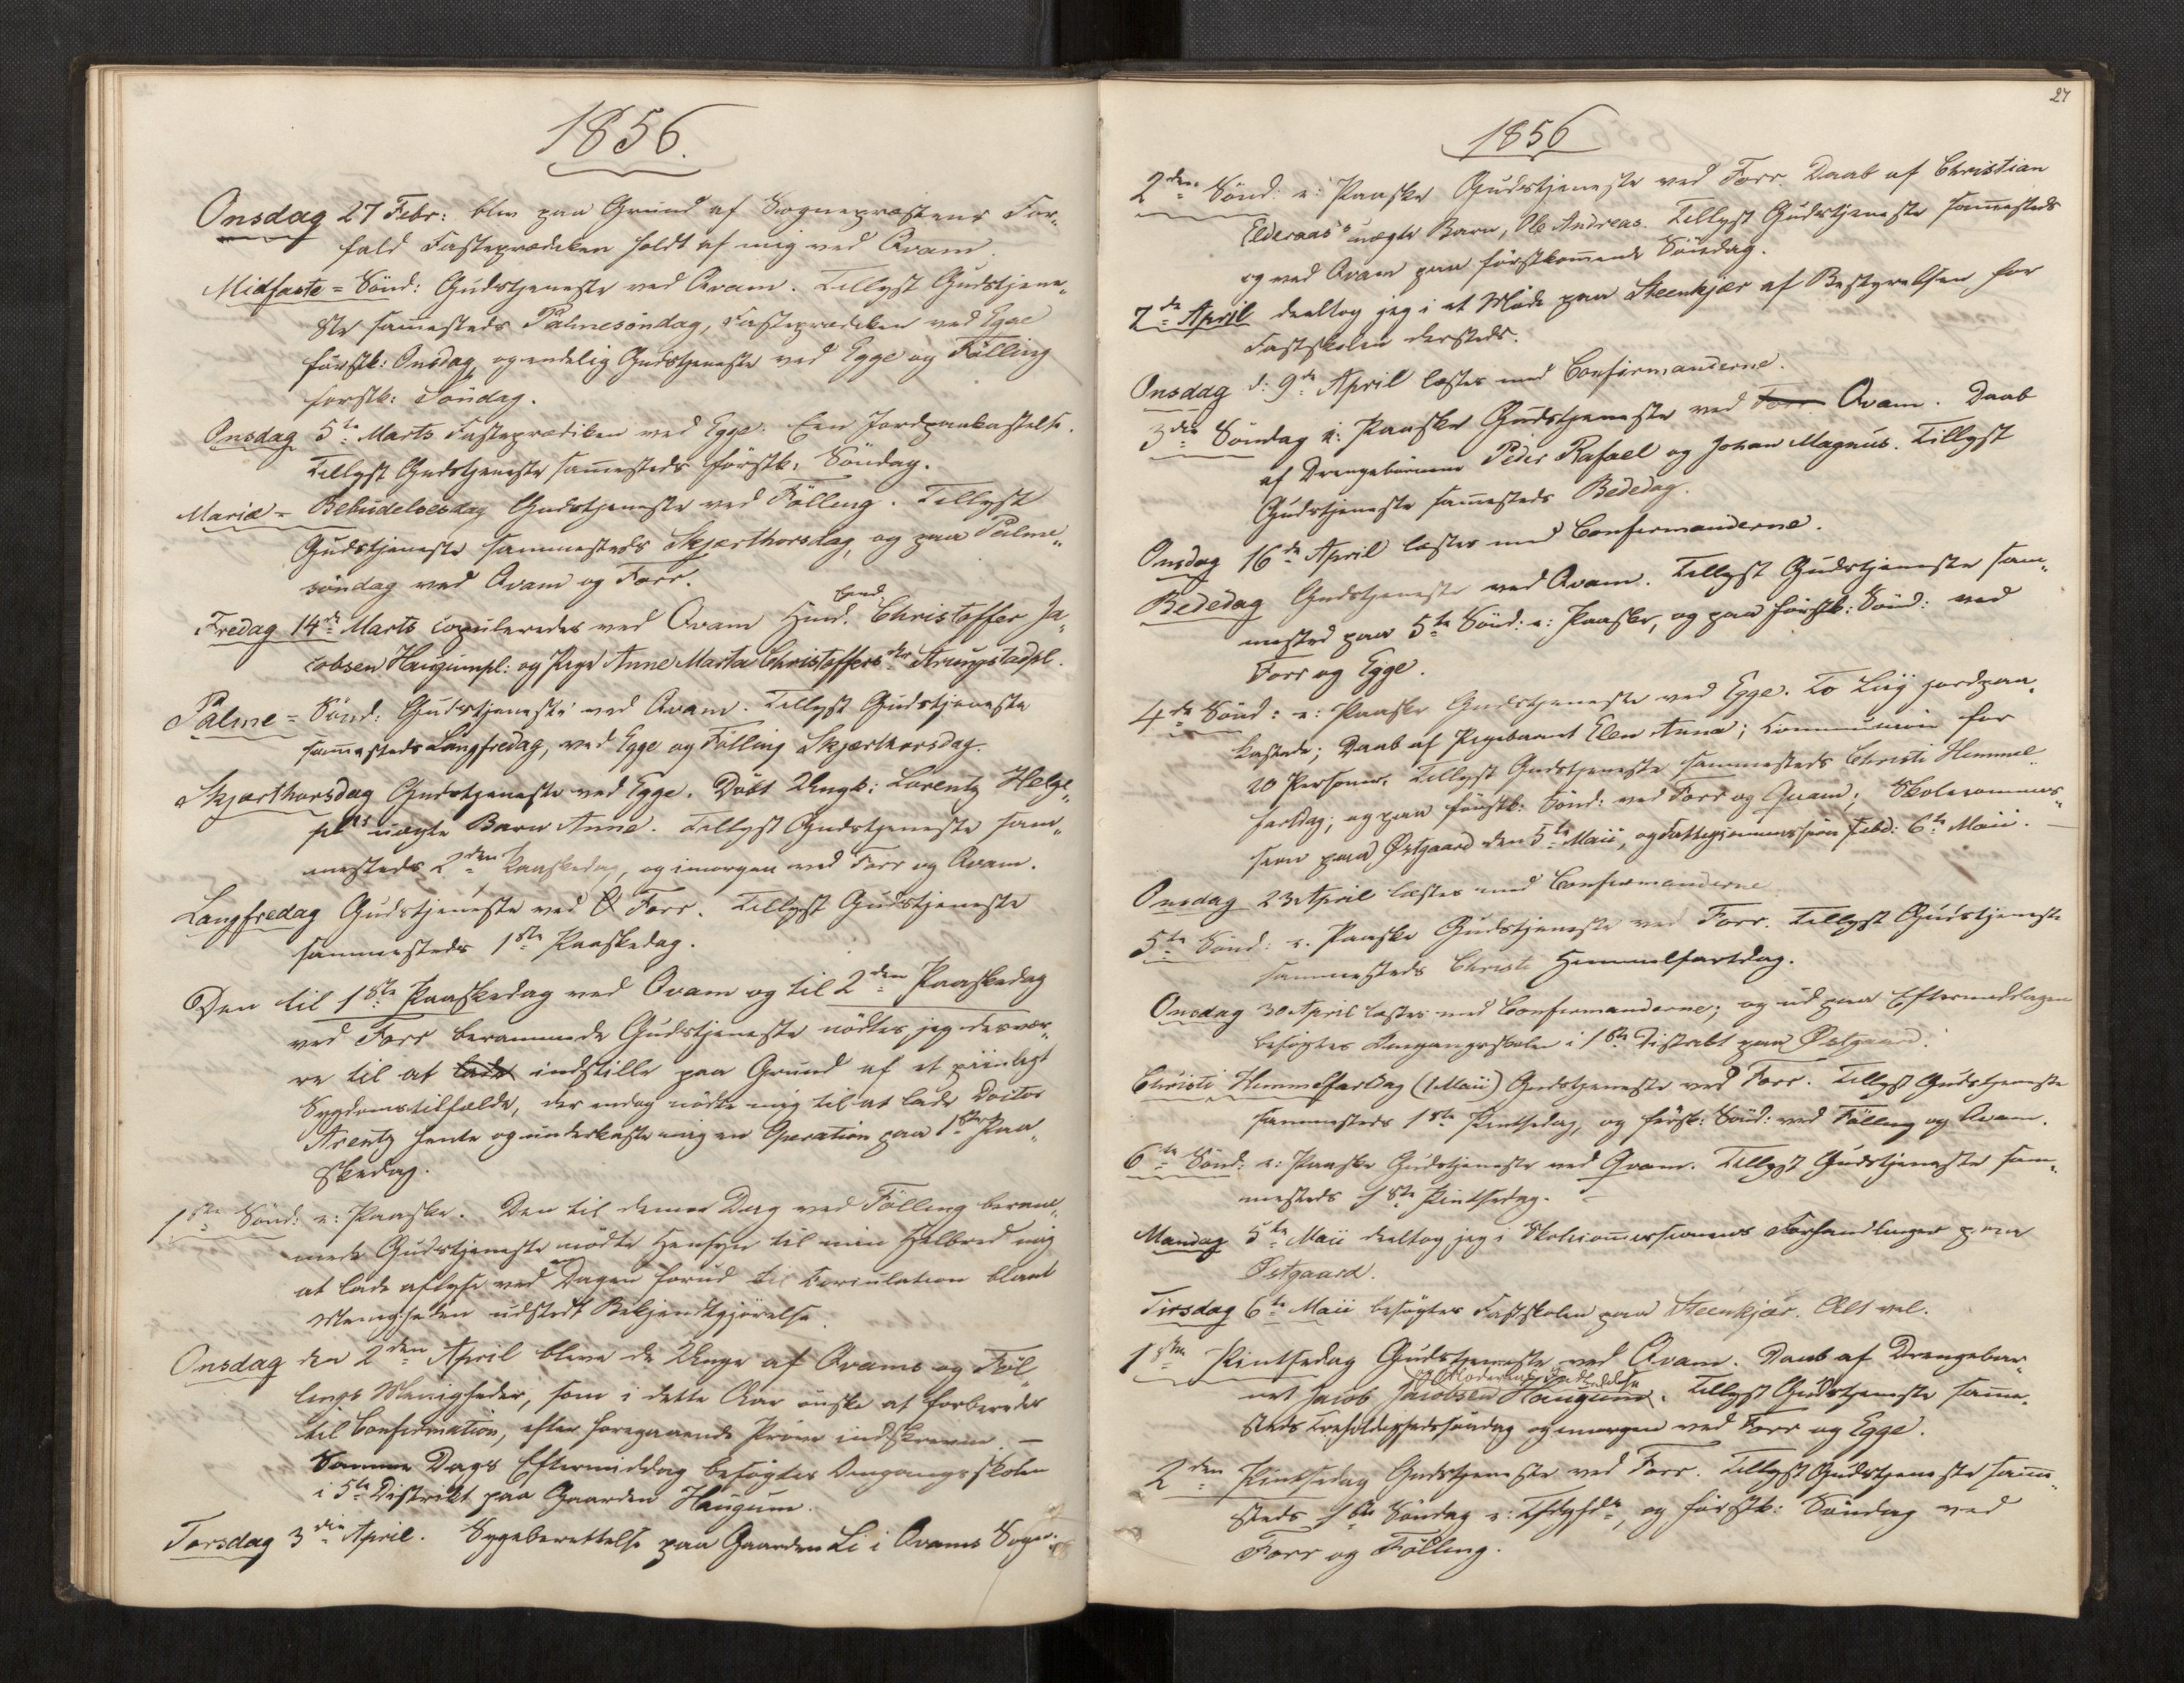 1856.
Onsdag 27 Febr: blev paa Grund af Sognepræstens For„
fald Fasteprædiken holdt af mig ved Qvam.
Midfaste = Sönd: Gudstjeneste ved Qvam. Tillyst Gudstjene„
ste sammesteds Palmesöndag, Fasteprædiken ved Egge
förstk: Onsdag, og endelig Gudstjeneste ved Egge og Fölling
förstk: Söndag.
Onsdag 5te Marts Fasteprædiken ved Egge. Een Jordpaakastelse.
Tillyst Gudstjeneste sammesteds förstk: Söndag.
Mariæ = Bebudelsesdag Gudstjeneste ved Fölling. Tillyst
Gudstjeneste sammesteds Skjærthorsdag, og paa Palme„
söndag ved Qvam og Forr.
Fredag 14de Marts copuleredes ved Qvam Christoffer Ja„
cobsen Haugumpl: og Pige Anne Marta Christoffersdtr Strugstadpl.
Palme = Sönd: Gudstjeneste ved Qvam. Tillyst Gudstjeneste
sammesteds Langfredag, ved Egge og Fölling Skjærthorsdag.
Skjærthorsdag Gudstjeneste ved Egge. Döbt Ungk: Lorentz Helge„
pls uægte Barn Anne. Tillyst Gudstjeneste sam„
mesteds 2den Paaskedag, og imorgen ved Forr og Qvam.
Langfredag Gudstjeneste ved Forr. Tillyst Gudstjeneste
sammesteds 1ste Paaskedag.
Den til 1ste Paaskedag ved Qvam og til 2den Paaskedag
ved Forr berammede Gudstjeneste nödtes jeg desvær„
re til at lade indstille paa Grund af et piinligt
Sygdomstilfælde, der endog nödte mig til at lade Doctor
Arentz hente og underkaste mig en Operation paa 1ste Paa„
skedag.
1ste Sönd: e: Paaske. Den til denne Dag ved Fölling beram„
mede Gudstjeneste nödte Hensyn til min Helbred mig
at lade aflyse ved Dagen forud til Circulation blant
Menigheden udstedt Bekjendtgjörelse.
Onsdag den 2den April bleve de Unge af Qvams og Föl„
lings Menigheder, som i dette Aar önske at forberedes
til Confirmation, efter foregaaende Pröve indskrevne. —
Samme Dags Eftermiddag besögtes Omgangsskolen
i 5te Distrikt paa Gaarden Haugum.
Torsdag 3die April. Sygeberettelse paa Gaarden Li i Qvams Sogn.
27
1856
2den Sönd: e: Paaske Gudstjeneste ved Forr. Daab af Christian
Elderaas's uægte Barn, Ole Andreas. Tillyst Gudstjeneste sammesteds
og ved Qvam paa förstkommende Söndag.
7de April deeltog jeg i et Möde paa Steenkjær af Bestyrelsen for
Fastskolen dersteds.
Onsdag d: 9de April læstes med Confirmanderne.
3die Söndag e: Paaske Gudstjeneste ved Forr Qvam. Daab
af Drengebörnene Peder Rafael og Johan Magnus. Tillyst
Gudstjeneste sammesteds Bededag.
Onsdag 16de April læstes med Confirmanderne.
Bededag Gudstjeneste ved Qvam. Tillyst Gudstjeneste sam„
mested paa 5te Sönd: e: Paaske, og paa förstk: Sönd: ved
Forr og Egge.
4de Sönd: e: Paaske Gudstjeneste ved Egge. To Liig jordpaa„
kastede; Daab af Pigebarnet Elen Anna; Communion for
20 Personer. Tillyst Gudstjeneste sammesteds Christi Himmel„
fartsdag; og paa förstk: Sönd: ved Forr og Qvam; Skolecommis„
sion paa Østgaard den 5te Maii, og Fattigcommission sstd: 6te Maii. —
Onsdag 23 April læstes med Confirmanderne
5te Sönd: e. Paaske Gudstjeneste ved Forr. Tillyst Gudstjeneste
sammesteds Christi Himmelfartsdag.
Onsdag 30 April læstes med Confirmanderne; og ud paa Eftermiddagen
besögtes Omgangsskolen i 1ste Distrikt paa Østgaard.
Christi Himmelfartsdag (1 Maii) Gudstjeneste ved Forr. Tillyst Gudstjeneste
sammesteds 1ste Pintsedag, og förstk: Sönd: ved Fölling og Qvam.
6te Sönd: e: Paaske Gudstjeneste ved Qvam. Tillyst Gudstjeneste sam„
mesteds 1ste Pintsedag. —
Mandag 5te Maii deeltog jeg i Skolecommissionens Forhandlinger paa
Østgaard.
Tirsdag 6te Maii besögtes Fastskolen paa Steenkjær. Alt vel.
1ste Pintsedag Gudstjeneste ved Qvam. Daab af Drengebar„
net Jacob Jacobsen Haugum. Tillyst Gudstjeneste samme„
steds Trefoldighedssöndag og imorgen ved Forr og Egge.
2den Pintsedag Gudstjeneste ved Forr. Tillyst Gudstjeneste samme„
steds 1ste Söndag e: Trfgh, og förstk: Söndag ved
Forr og Fölling.